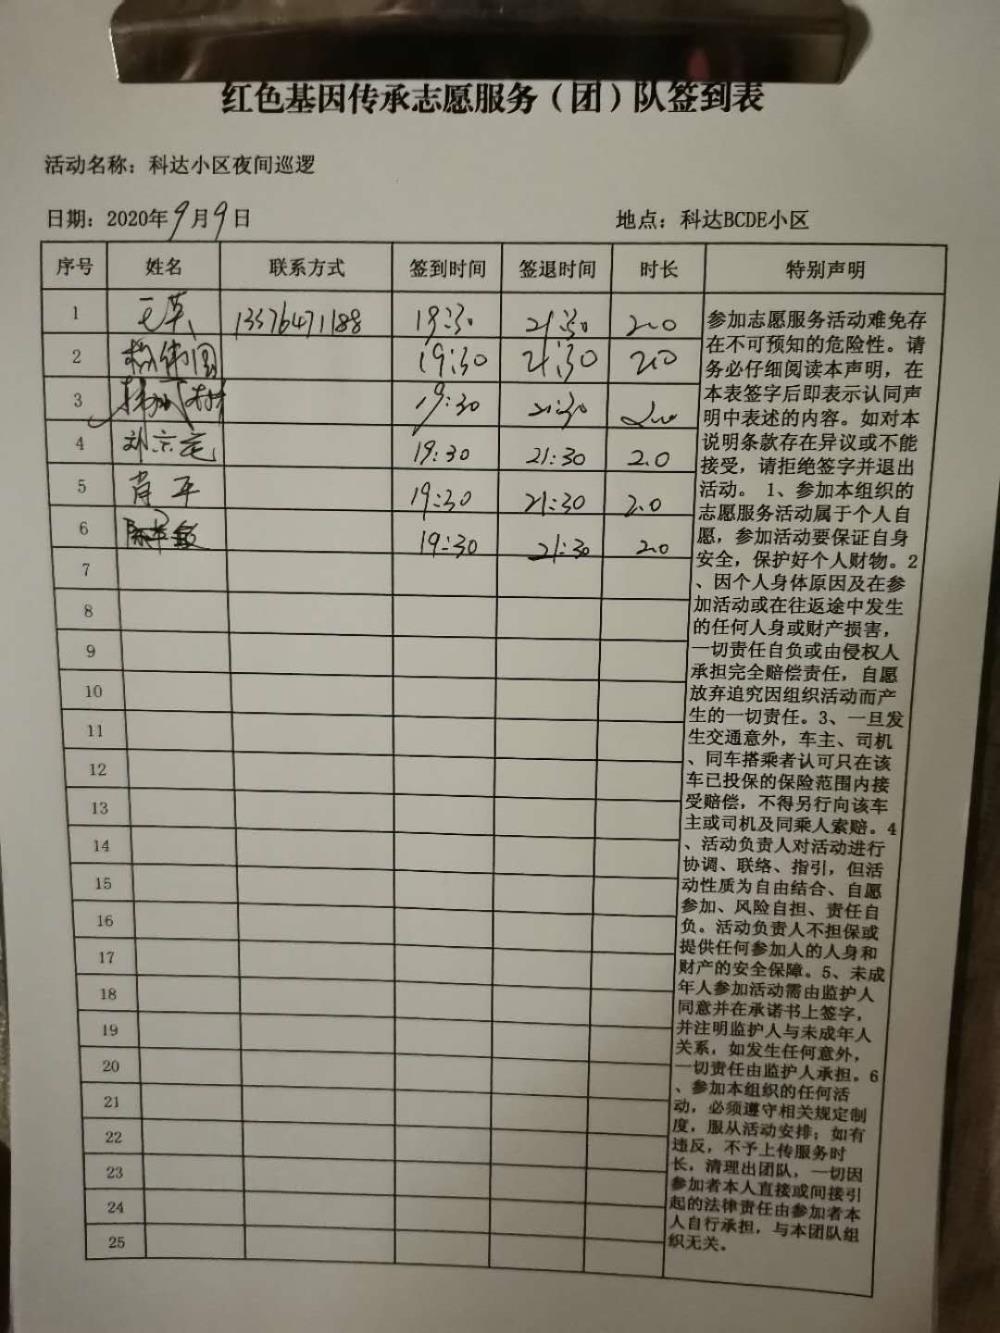 红色基因传承志愿服务（团）队签到表
活动名称：科达小区夜间巡逻
日期：2020年9月9日
地点：科达BCDE小区
序号 姓名 联系方式 签到时间 签退时间 时长 特别声明
1 13576471188 19:30 21:30 2.0
2 19:30 21:30 2.0
3 19:30 21:30 2.0
4 19:30 21:30 2.0
5 肖平 19:30 21:30 2.0
6 19:30 21:30 2.0
7
8
9
10
11
12
13
14
15
16
17
18
19
20
21
22
23
24
25
参加志愿服务活动难免存
在不可预知的危险性。请
务必仔细阅读本声明，在
本表签字后即表示认同声
明中表述的内容。如对本
说明条款存在异议或不能
接受，请拒绝签字并退出
活动。 1、参加本组织的
志愿服务活动属于个人自
愿，参加活动要保证自身
安全，保护好个人财物。2
、因个人身体原因及在参
加活动或在往返途中发生
的任何人身或财产损害，
一切责任自负或由侵权人
承担完全赔偿责任，自愿
放弃追究因组织活动而产
生的一切责任。3、一旦发
生交通意外，车主、司机
、同车搭乘者认可只在该
车已投保的保险范围内接
受赔偿，不得另行向该车
主或司机及同乘人索赔。4
、活动负责人对活动进行
协调、联络、指引，但活
动性质为自由结合、自愿
参加、风险自担、责任自
负。活动负责人不担保或
提供任何参加人的人身和
财产的安全保障。5、未成
年人参加活动需由监护人
同意并在承诺书上签字，
并注明监护人与未成年人
关系，如发生任何意外，
一切责任由监护人承担。6
、参加本组织的任何活
动，必须遵守相关规定制
度，服从活动安排；如有
违反，不予上传服务时
长，清理出团队，一切因
参加者本人直接或间接引
起的法律责任由参加者本
人自行承担，与本团队组
织无关。